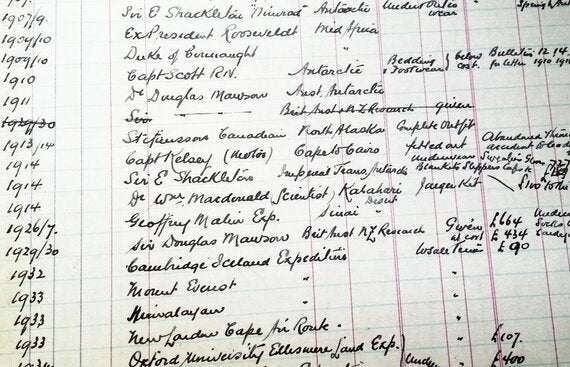 1907/9. Sir E Shackleton "Nimrod" Antarctic Under Outer wear
1909/10 Ex President Rooseveldt Mid Africa
1909/10 Duke of Connaught "
1910 Capt Scott R.N. Antarctic Bedding & Footwear } below cost. Bulletin 12. 14.
1911 Dr Douglas Mawson Aust. Antarctic
1929/30 Sir Brit Aust & N.Z. Research given
1913/14 Stefansson Canadian North Alaska Complete Outfit Abandoned
1914 Capt Kelsey (Motor) Cape to Cairo fitted out accident to
1914 Sir E Shackleton Imperial Trans/antarctic underwear Blankets Slippers Caps
1914 Dr Wm. Macdonald (Scientist) Kalahari Desert Jaeger Kit £100
1914 Geoffrey Malin Exp. Sinai "
1926/7. Sir Douglas Mawson Brit Aust N Z Research Given £664
1929/30 at cost £434
Cambridge Iceland Expedition Wsale Terms £90
1932 Mount Everest "
1933 Himalayan "
1933 New London Cape Air Route. "
1933 Oxford University Ellesmere Land Exp.) Under £107.
£400